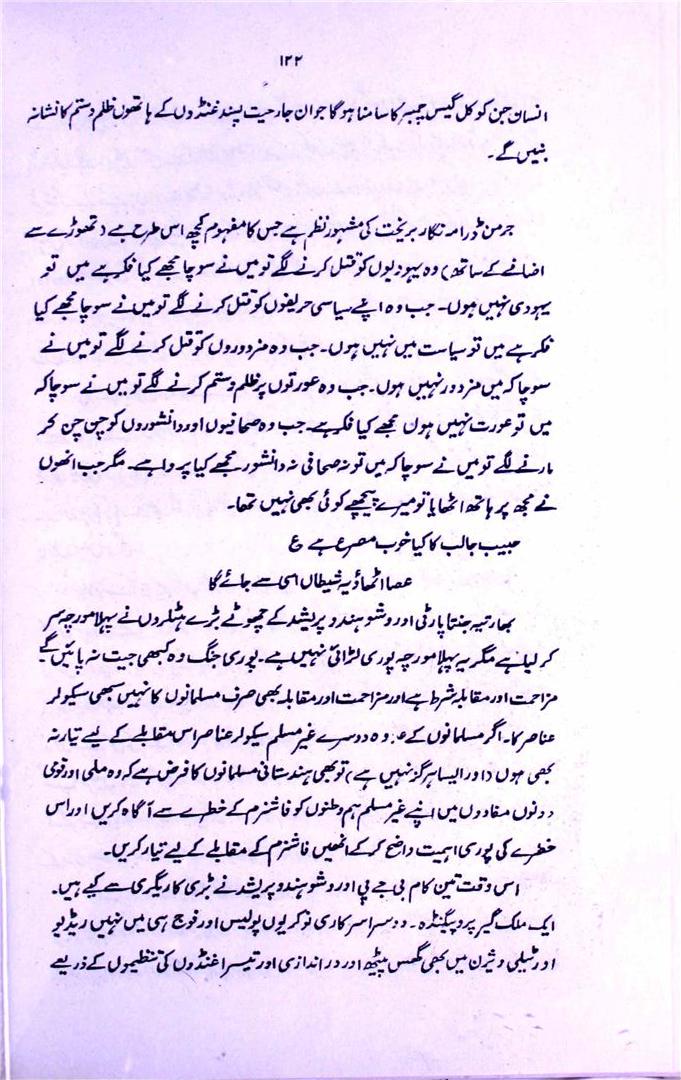 ۱۲۲
انسان جن کو کل گیس چیمبر کا سامنا ہوگا جو ان جارحیت پسند غنڈوں کے ہاتھوں ظلم و ستم کا نشانہ
بنیں گے۔
جرمن ڈرامہ نگار بریخت کی مشہور نظم ہے جس کا مفہوم کچھ اس طرح ہے (تھوڑے سے
اضافے کے ساتھ) وہ یہودیوں کو قتل کرنے لگے تو میں نے سوچا مجھے کیا فکر ہے میں تو
یہودی نہیں ہوں۔ جب وہ اپنے سیاسی حریفوں کو قتل کرنے لگے تو میں نے سوچا مجھے کیا
فکر ہے میں تو سیاست میں نہیں ہوں۔ جب وہ مزدوروں کو قتل کرنے لگے تو میں نے
سوچا کہ میں مزدور نہیں ہوں۔ جب وہ عورتوں پر ظلم و ستم کرنے لگے تو میں نے سوچا کہ
میں تو عورت نہیں ہوں مجھے کیا فکر ہے۔ جب وہ صحافیوں اور دانشوروں کو چن چن کر
مارنے لگے تو میں نے سوچا کہ میں تو نہ صحافی نہ دانشور مجھے کیا پروا ہے۔ مگر جب انھوں
نے مجھ پر ہاتھ اٹھایا تو میرے پیچھے کوئی بھی نہیں تھا۔
حبیب جالب کا کیا خوب مصرع ہے ع
عصا اٹھاؤ یہ شیطاں اسی سے جائے گا
بھارتیہ جنتا پارٹی اور وشو ہندو پریشد کے چھوٹے بڑے ہٹلروں نے پہلا مورچہ سر
کر لیا ہے مگر یہ پہلا مورچہ پوری لڑائی نہیں ہے۔ پوری جنگ وہ کبھی جیت نہ پائیں گے
مزاحمت اور مقابلہ شرط ہے اور مزاحمت اور مقابلہ بھی صرف مسلمانوں کا نہیں سبھی سیکولر
عناصر کا۔ اگر مسلمانوں کے وہ دوسرے غیر مسلم سیکولر عناصر اس مقابلے کے لیے تیار نہ
بھی ہوں (اور ایسا ہرگز نہیں ہے) تو بھی ہندستانی مسلمانوں کا فرض ہے کہ وہ ملی اور قومی
دونوں مفادوں میں اپنے غیر مسلم ہم وطنوں کو فاشزم کے خطرے سے آگاہ کریں اور اس
خطرے کی پوری اہمیت واضح کر کے انھیں فاشزم کے مقابلے کے لیے تیار کریں۔
اس وقت تین کام بی جے پی اور وشو ہندو پریشد نے بڑی کاریگری سے کیے ہیں۔
ایک ملک گیر پروپیگنڈہ۔ دوسرا سرکاری نوکریوں پولیس اور فوج ہی میں نہیں ریڈیو
اور ٹیلی ویژن میں بھی گھس پیٹھ اور در اندازی اور تیسرا غنڈوں کی تنظیموں کے ذریعے